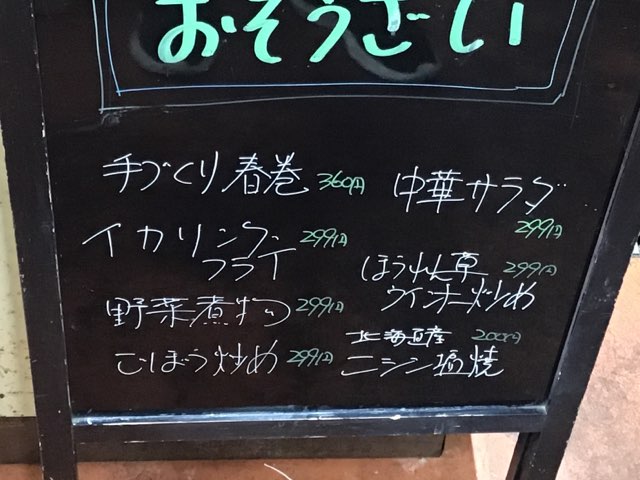 おそうざい
手づくり春巻 360円
イカリング 299円
フライ
野菜煮物 299円
ごぼう炒め 299円
中華サラダ
299円
ほうれん草 299円
ウインナー炒め
北海道産 200円
ニシン塩焼